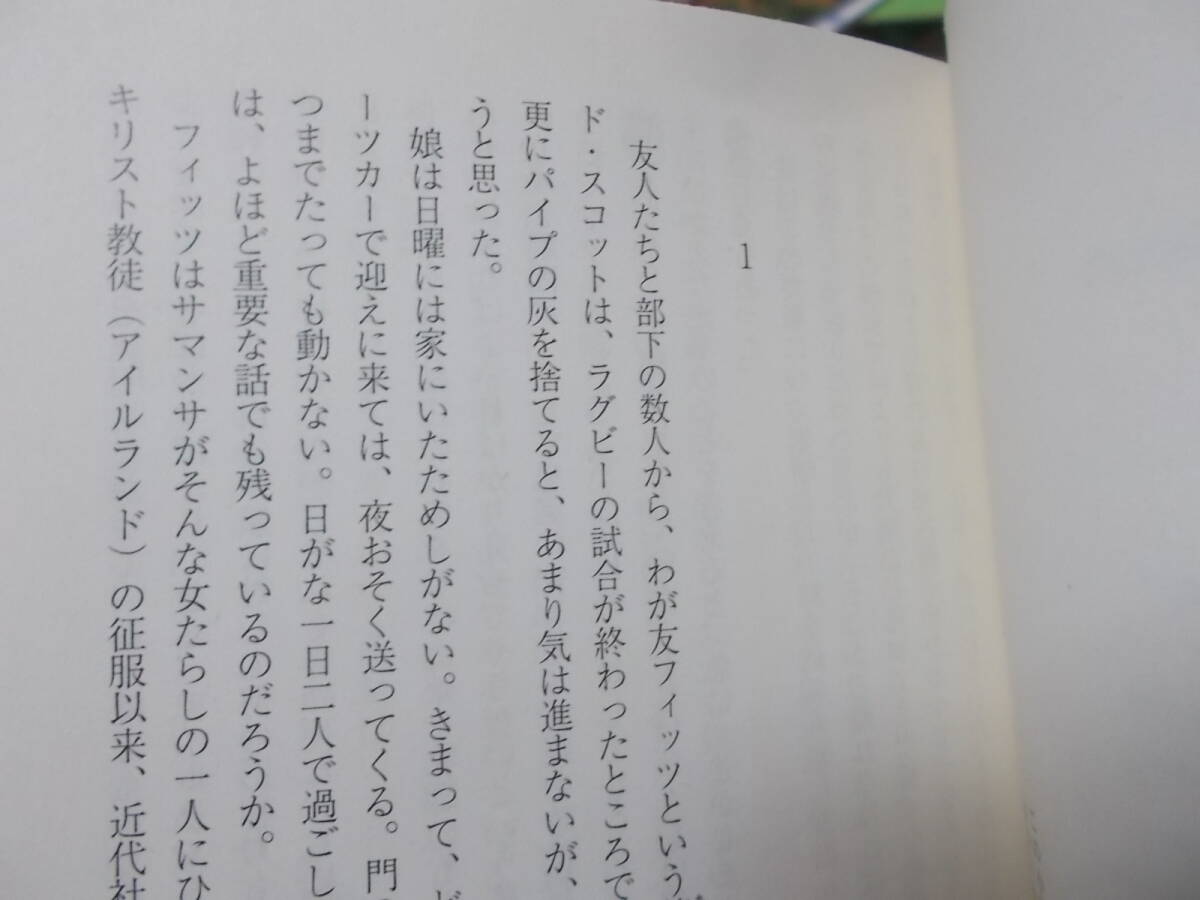 1
友人たちと部下の数人から、わが友フィッツという
ド・スコットは、ラグビーの試合が終わったところで
更にパイプの灰を捨てると、あまり気は進まないが、
うと思った。
娘は日曜には家にいたためしがない。きまって、ど
ーツカーで迎えに来ては、夜おそく送ってくる。門
つまでたっても動かない。日がな一日二人で過ごし
は、よほど重要な話でも残っているのだろうか。
フィッツはサマンサがそんな女たらしの一人にひ
キリスト教徒（アイルランド）の征服以来、近代社